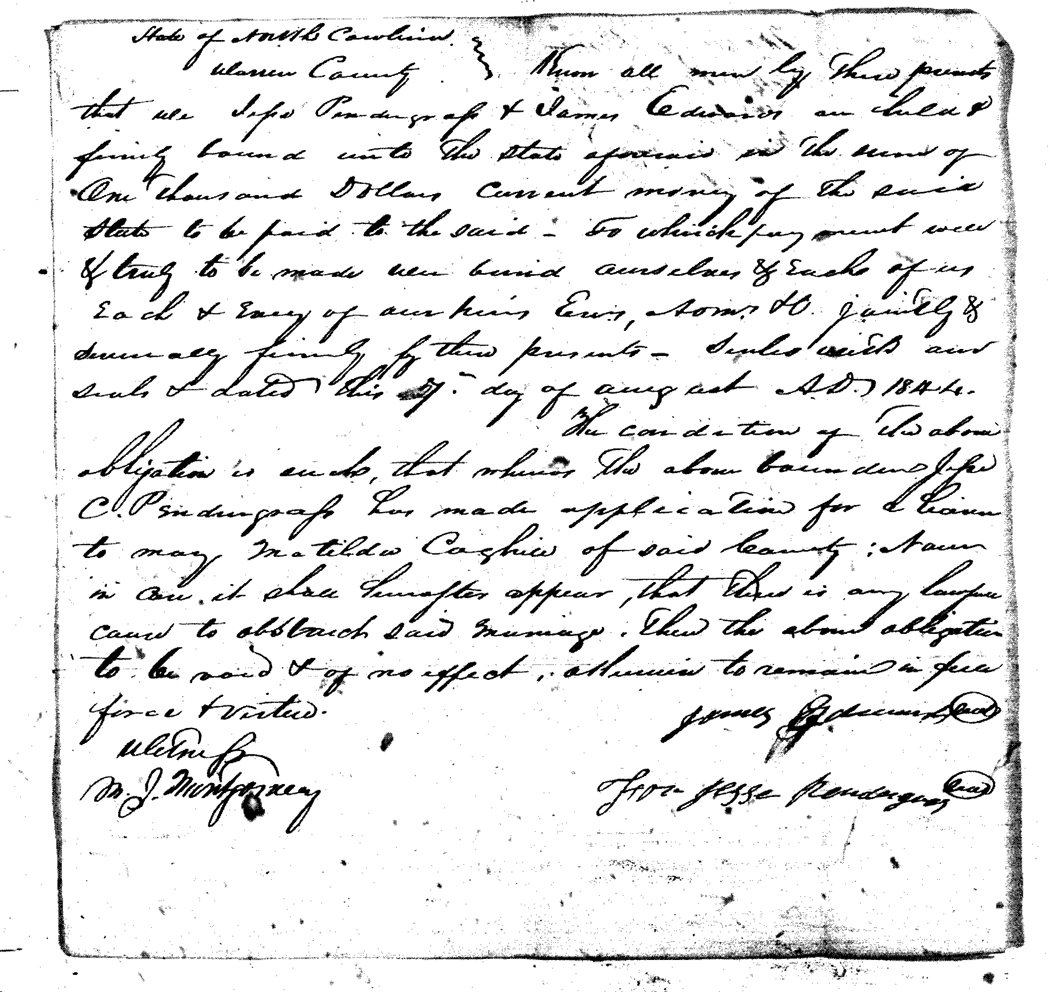 State of North Carolina
Warren County } Know all men by these presents
that we Jesse Pendergrass & James Edwards are held &
firmly bound unto the State aforesaid in the sum of
One thousand Dollars current money of the said
State to be paid to the said – To which payment well
& truly to be made we bind ourselves & Each of us
Each & Every of our heirs Exrs, Adms &C. jointly &
severally firmly by these presents – Sealed with our
seals & dated this 7th. day of August A.D. 1844.
The condition of the above
obligation is such, that whereas the above bounden Jesse
C. Pendergrass has made application for a licence
to marry Matilda Coghill of said County; Now
in case it shall hereafter appear, that there is any lawful
cause to obstruct said marriage. Then the above obligation
to be void & of no effect, otherwise to remain in full
force & virtue.
James Edwards Seal
Witness
M. J. Montgomery
Jesse Pendergrass Seal